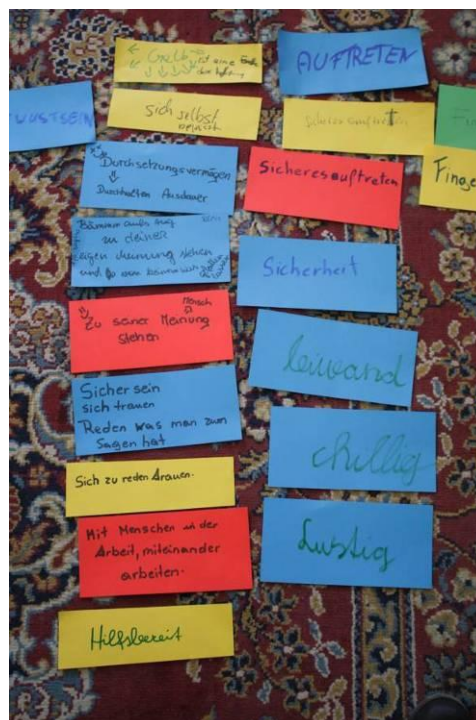 Gelb
ist eine
AUFTRETEN
WUSTSEIN
Sich selbst
Sicheres auftreten
Fin
Durchsetzungsvermögen
Durchhalten Ausdauer
Sicheresauftreten
Finge
zu deiner
eigen meinung stehen
Sicherheit
Mensch
Zu seiner Meinung
stehen
leiwand
Sicher sein
sich trauen
Reden was man zum
Sagen hat
chillig
Sich zu reden trauen.
Mit Menschen in der
Arbeit, miteinander
arbeiten.
Lustig
Hilfsbereit